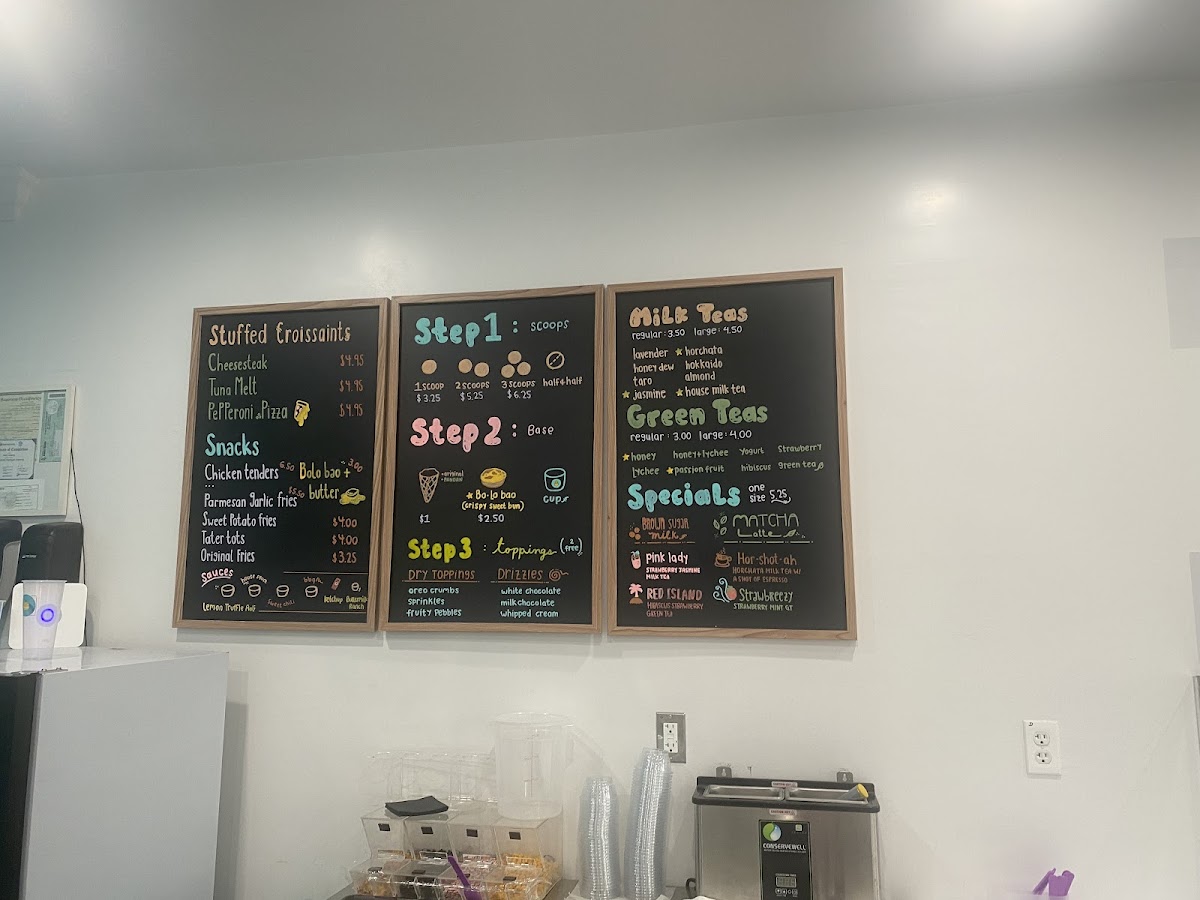 Stuffed Croissaints
Cheesesteak $4.95
Tuna Melt $4.95
Pepperoni Pizza $4.95
Snacks
Chicken tenders 6.50
Bolo bao + butter 3.00
Parmesan garlic fries $5.50
Sweet Potato fries $4.00
Tater tots $4.00
Original fries $3.25
Sauces
house sauce
sweet chili
ketchup
Buttermilk Ranch
Lemon Truffle Aioli
Step 1 : scoops
1 scoop 2 scoops 3 scoops half & half
$3.25 $5.25 $6.25
Step 2 : Base
Bo-lo bao
(crispy sweet bun)
cup
$1 $2.50
Step 3 : toppings (2 free)
Dry Toppings
oreo crumbs
sprinkles
fruity pebbles
Drizzles
white chocolate
milk chocolate
whipped cream
Milk Teas
regular: 3.50 large: 4.50
lavender horchata
honeydew hokkaido
taro almond
jasmine house milk tea
Green Teas
regular: 3.00 large: 4.00
honey honey+lychee yogurt Strawberry
lychee passion fruit hibiscus green tea
Specials one size 5.25
Brown Suga Milk
Matcha Latte
Pink lady
Strawberry Jasmine
Milk Tea
Hor-shot-ah
Horchata milk tea w/
a shot of espresso
Red Island
Hibiscus Strawberry
Green Tea
Strawbreezy
Strawberry Mint GT
CONSERVEWELL